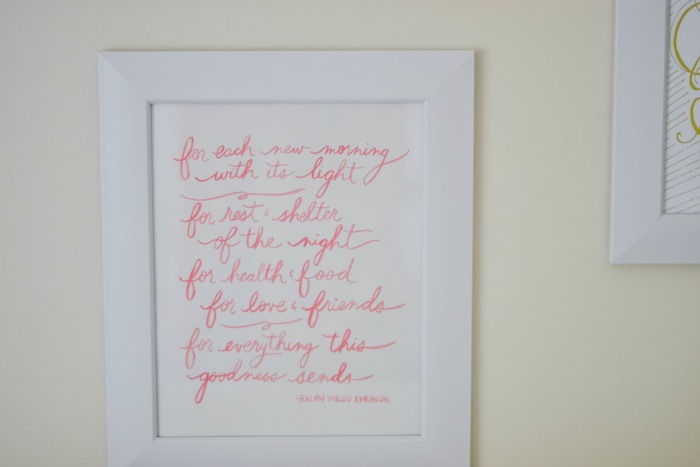 for each new morning
with its light
for rest & shelter
of the night
for health & food
for love & friends
for everything this
goodness sends
-RALPH WALDO EMERSON